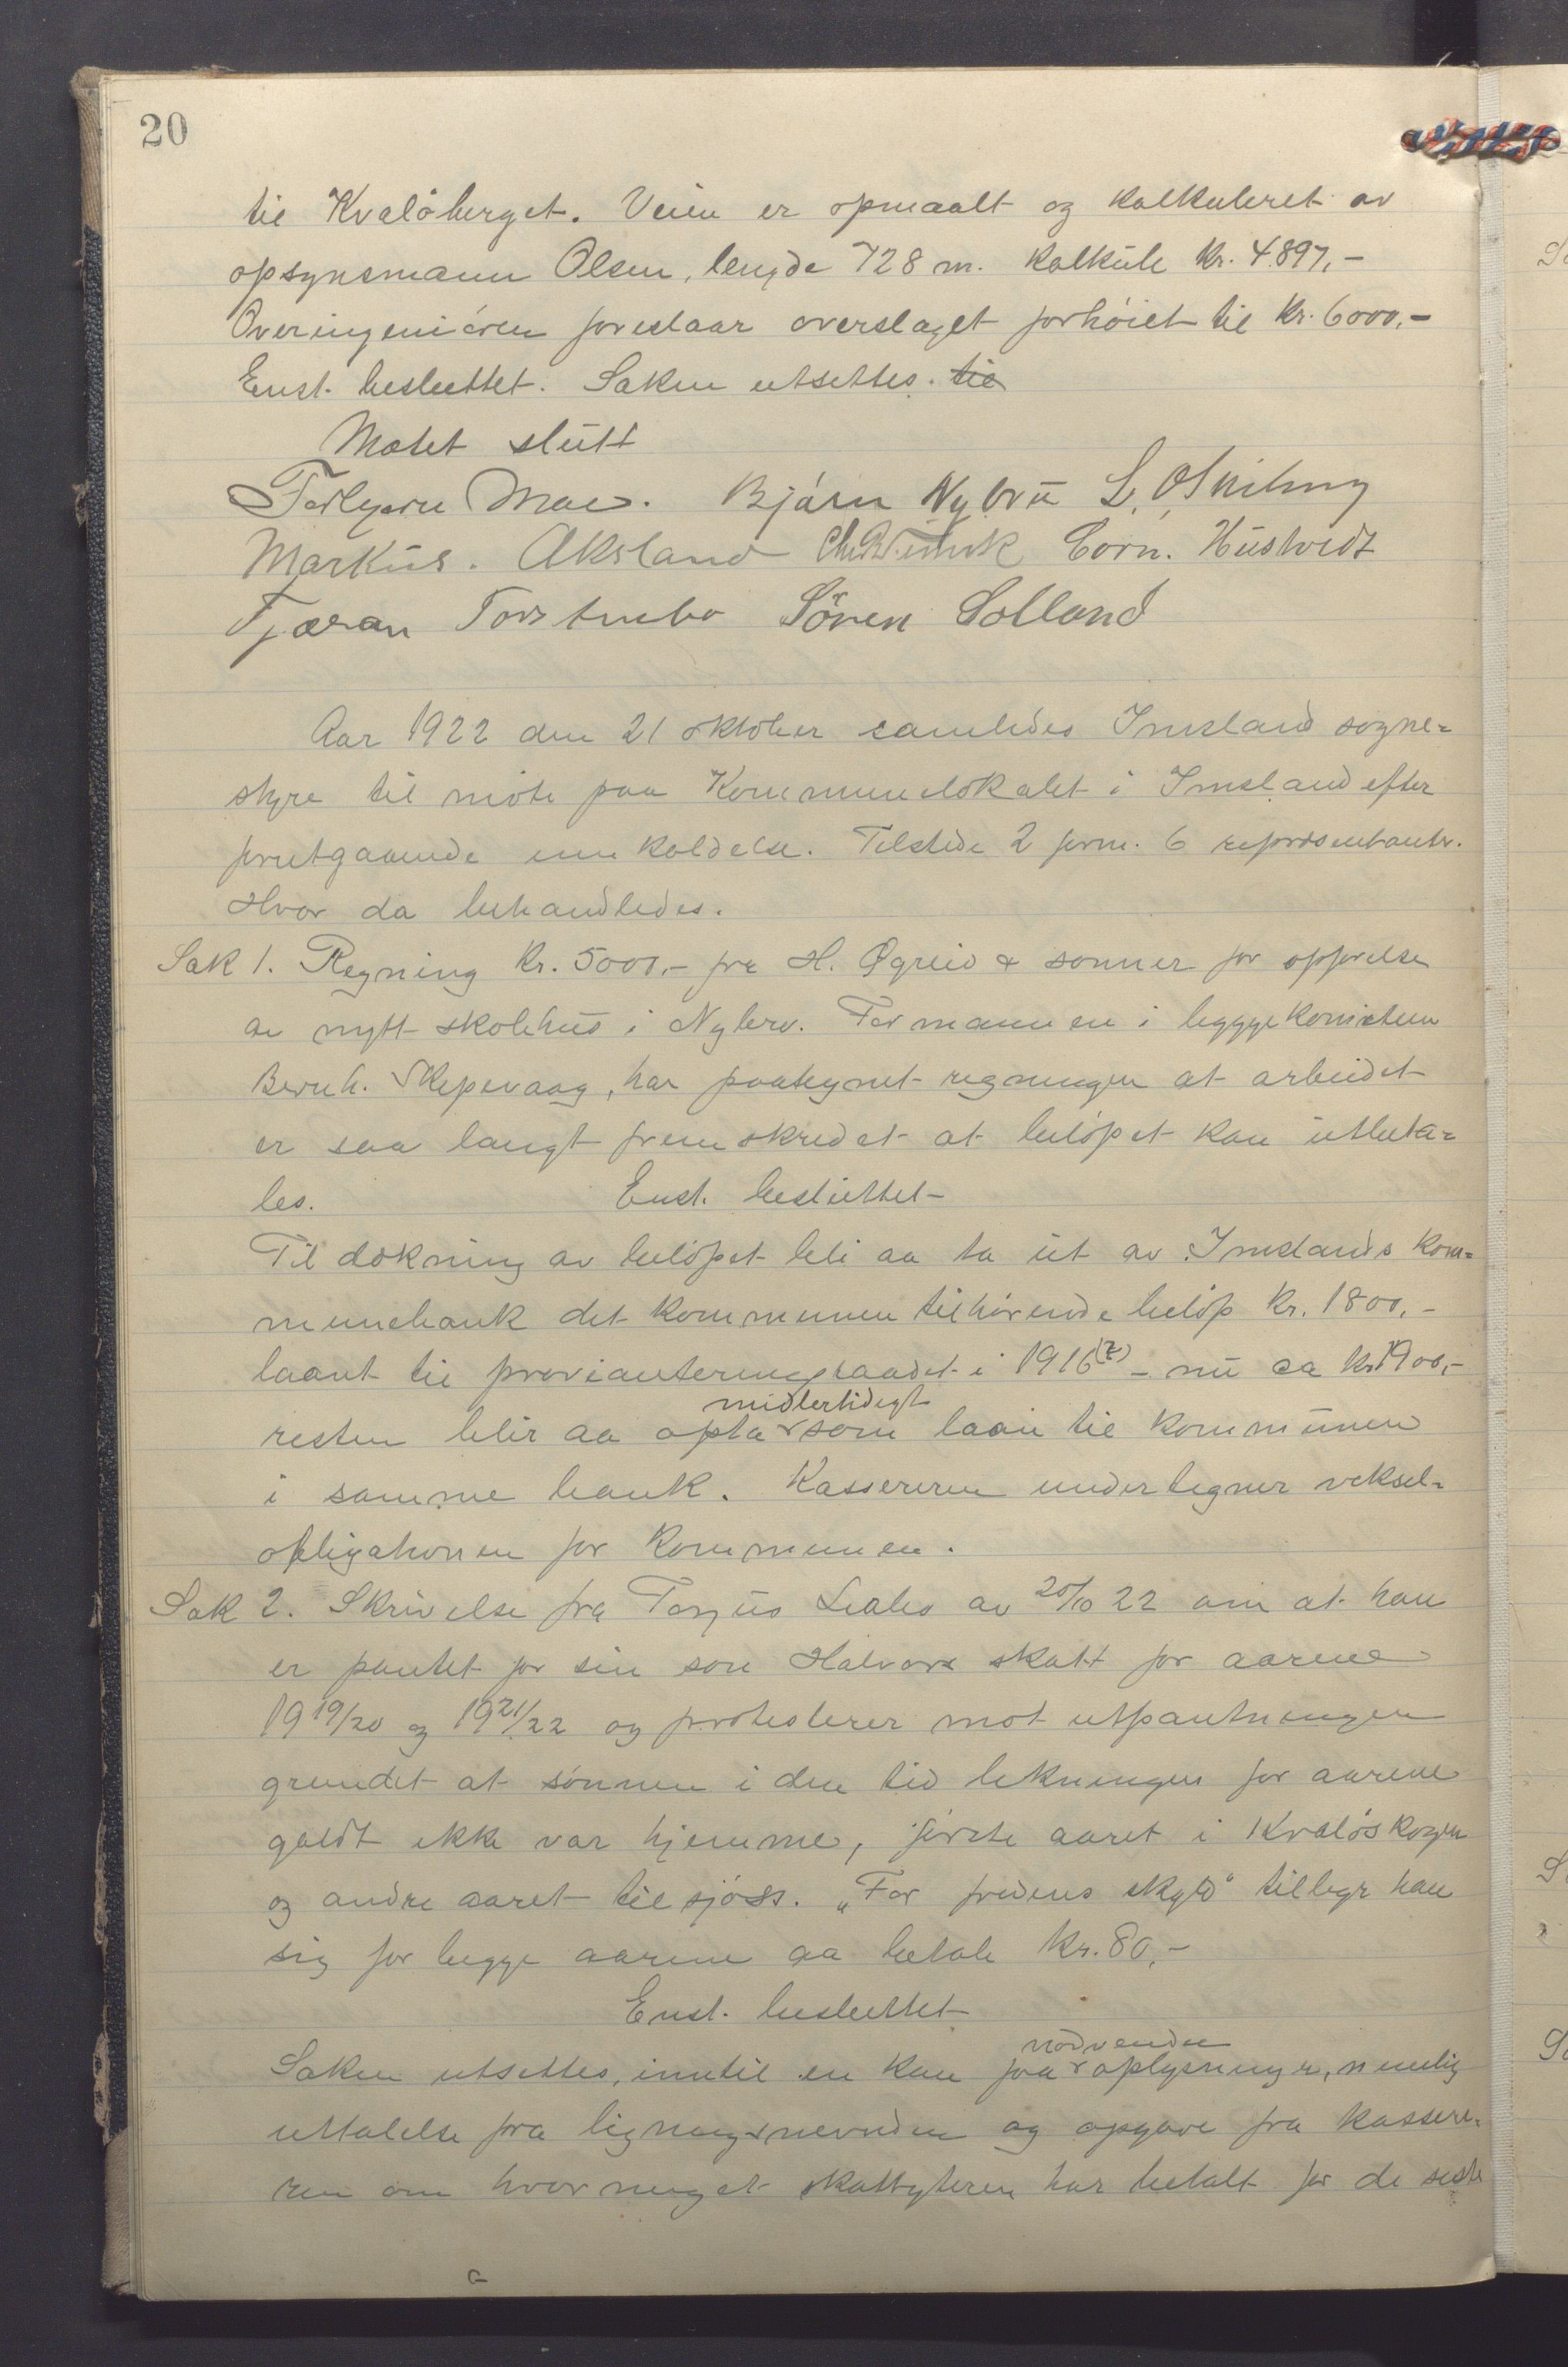 20
til Kvaløberget. Veien er opmaalt og kalkuleret av
opsynsmann Olsen, lengde 728 m. Kalkule kr. 4.897,-
Overingeniøren foreslaar overslaget forhøiet til kr. 6000,-
Enst. besluttet. Saken utsettes. til
Møtet slutt
Torbjørn Moe. Bjørn Nybru
Markus. Aksland Corn. Hustvedt
Tjæran Søren Solland
Aar 1922 den 21 oktober samledes Imsland sogne-
styre til møte paa Kommunelokalet i Imsland efter
forutgaaende innkaldelse. Tilstede 2 form. 6 representanter.
Hvor da behandledes.
Sak 1. Regning kr. 5000,- fra H. Øgreid & sønner for opførelse
av nytt skolehus i Nybru. Formannen i byggekomiteen
Bernh. Skipevaag, har paategnet regningen at arbeidet
er saa langt fremskredet at beløpet kan utbeta-
les. Enst. besluttet
Til dekning av beløpet bli aa ta ut av Imslands kom-
munebank det kommunen tilhørende beløp kr. 1800,-
laant til provianteringsraadet i 1916(7) - nu ca kr 1900,-
midlertidigt
resten blir aa opta som laan til kommunen
i samme bank. Kassereren undertegner veksel-
obligationen for kommunen.
Sak 2. Skrivelse fra Torjus av 20/10 22 om at han
er pantet for sin søn Halvors skatt for aarene
19 19/20 og 19 21/22 og protesterer mot utpantningen
grundet at sønnen i den tid likningen for aarene
galdt ikke var hjemme, første aaret i Kvaløskogen
og andre aaret til sjøss. „For fredens skyld" tilbyr han
sig for begge aarene aa betale kr. 80,-
Enst. besluttet
nødvendie
Saken utsettes, inntil en kan faa oplysninger, nemlig
uttalelse fra ligningsnevnden og opgave fra kassere-
ren om hvor meget skattyteren har betalt for de siste